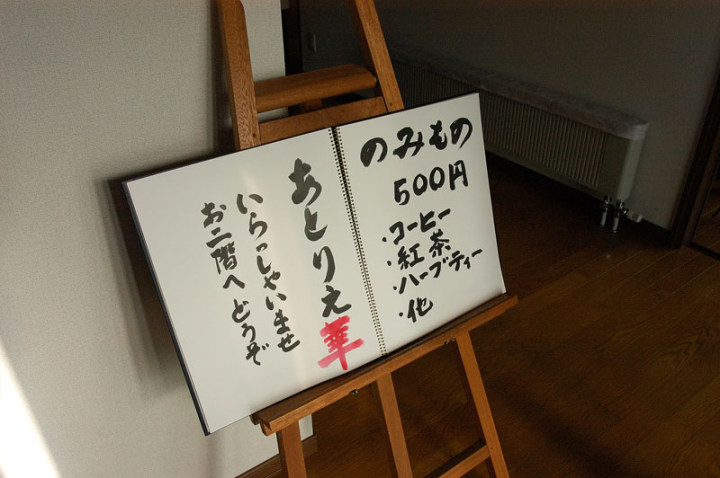 あとりえ華
いらっしゃいませ
お二階へどうぞ
のみもの
500円
・コーヒー
・紅茶
・ハーブティー
・他